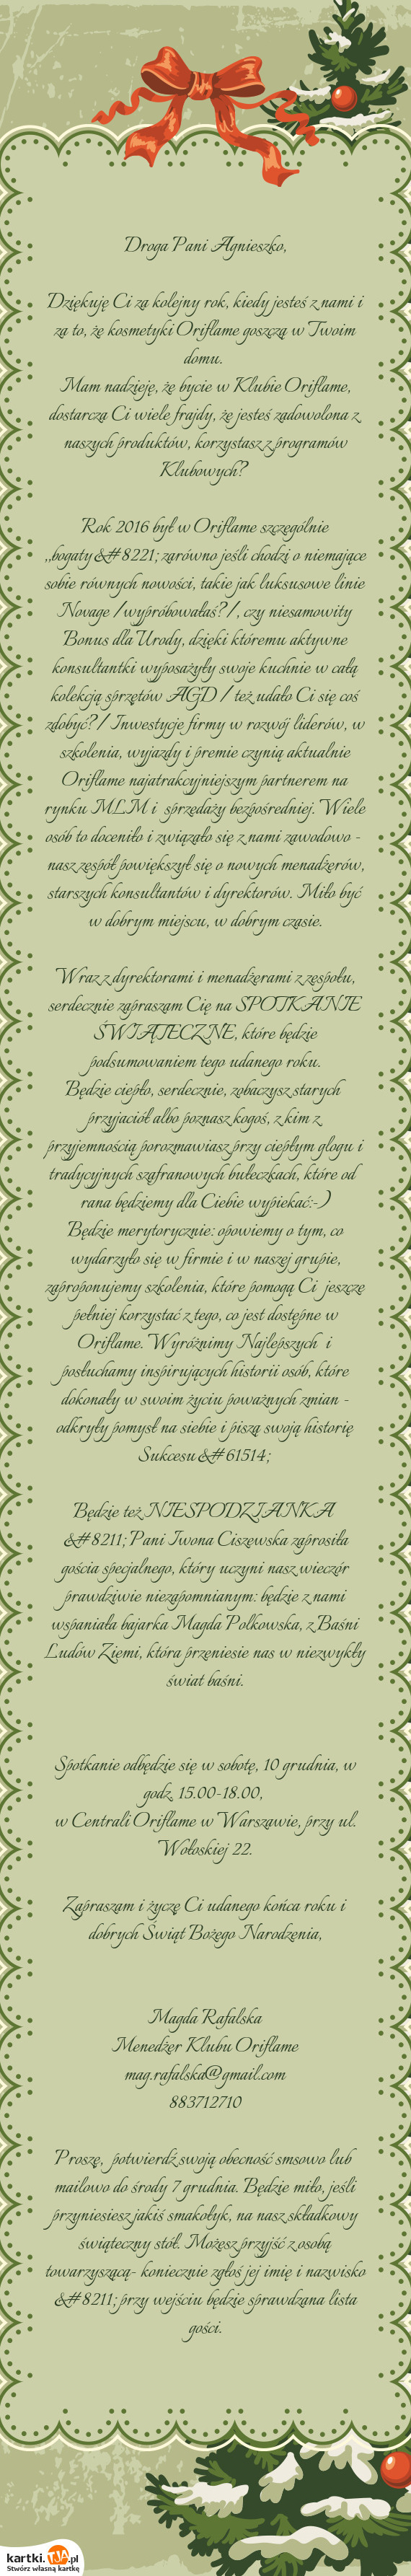 Droga Pani Agnieszko,
Dziękuję Ci za kolejny rok, kiedy jesteś z nami i
za to, że kosmetyki Oriflame goszczą w Twoim
domu.
Mam nadzieję, że bycie w Klubie Oriflame,
dostarcza Ci wiele frajdy, że jesteś zadowolona z
naszych produktów, korzystasz z programów
Klubowych?
Rok 2016 był w Oriflame szczególnie
,,bogaty&#8221; zarówno jeśli chodzi o niemające
sobie równych nowości, takie jak luksusowe linie
Novage /wypróbowałaś?/, czy niesamowity
Bonus dla Urody, dzięki któremu aktywne
konsultantki wyposażyły swoje kuchnie w całą
kolekcją sprzętów AGD / też udało Ci się coś
zdobyć?/ Inwestycje firmy w rozwój liderów, w
szkolenia, wyjazdy i premie czynią aktualnie
Oriflame najatrakcyjniejszym partnerem na
rynku MLM i sprzedaży bezpośredniej. Wiele
osób to doceniło i związało się z nami zawodowo -
nasz zespół powiększył się o nowych menadżerów,
starszych konsultantów i dyrektorów. Miło być
w dobrym miejscu, w dobrym czasie.
Wraz z dyrektorami i menadżerami z zespołu,
serdecznie zapraszam Cię na SPOTKANIE
ŚWIĄTECZNE, które będzie
podsumowaniem tego udanego roku.
Będzie ciepło, serdecznie, zobaczysz starych
przyjaciół albo poznasz kogoś, z kim z
przyjemnością porozmawiasz przy ciepłym glogu i
tradycyjnych szafranowych bułeczkach, które od
rana będziemy dla Ciebie wypiekać:-)
Będzie merytorycznie: opowiemy o tym, co
wydarzyło się w firmie i w naszej grupie,
zaproponujemy szkolenia, które pomogą Ci jeszcze
pełniej korzystać z tego, co jest dostępne w
Oriflame. Wyróżnimy Najlepszych i
posłuchamy inspirujących historii osób, które
dokonały w swoim życiu poważnych zmian -
odkryły pomysł na siebie i piszą swoją historię
Sukcesu &#61514;
Będzie też NIESPODZIANKA
&#8211; Pani Iwona Ciszewska zaprosiła
gościa specjalnego, który uczyni nasz wieczór
prawdziwie niezapomnianym: będzie z nami
wspaniała bajarka Magda Polkowska, z Baśni
Ludów Ziemi, która przeniesie nas w niezwykły
świat baśni.
Spotkanie odbędzie się w sobotę, 10 grudnia, w
godz. 15.00-18.00,
w Centrali Oriflame w Warszawie, przy ul.
Wołoskiej 22.
Zapraszam i życzę Ci udanego końca roku i
dobrych Świąt Bożego Narodzenia,
Magda Rafalska
Menedżer Klubu Oriflame
mag.rafalska@gmail.com
883712710
Proszę, potwierdź swoją obecność smsowo lub
mailowo do środy 7 grudnia. Będzie miło, jeśli
przyniesiesz jakiś smakołyk, na nasz składkowy
świąteczny stół. Możesz przyjść z osobą
towarzyszącą- koniecznie zgłoś jej imię i nazwisko
&#8211; przy wejściu będzie sprawdzana lista
gości.
kartki.TJA.pl
Stwórz własną kartkę